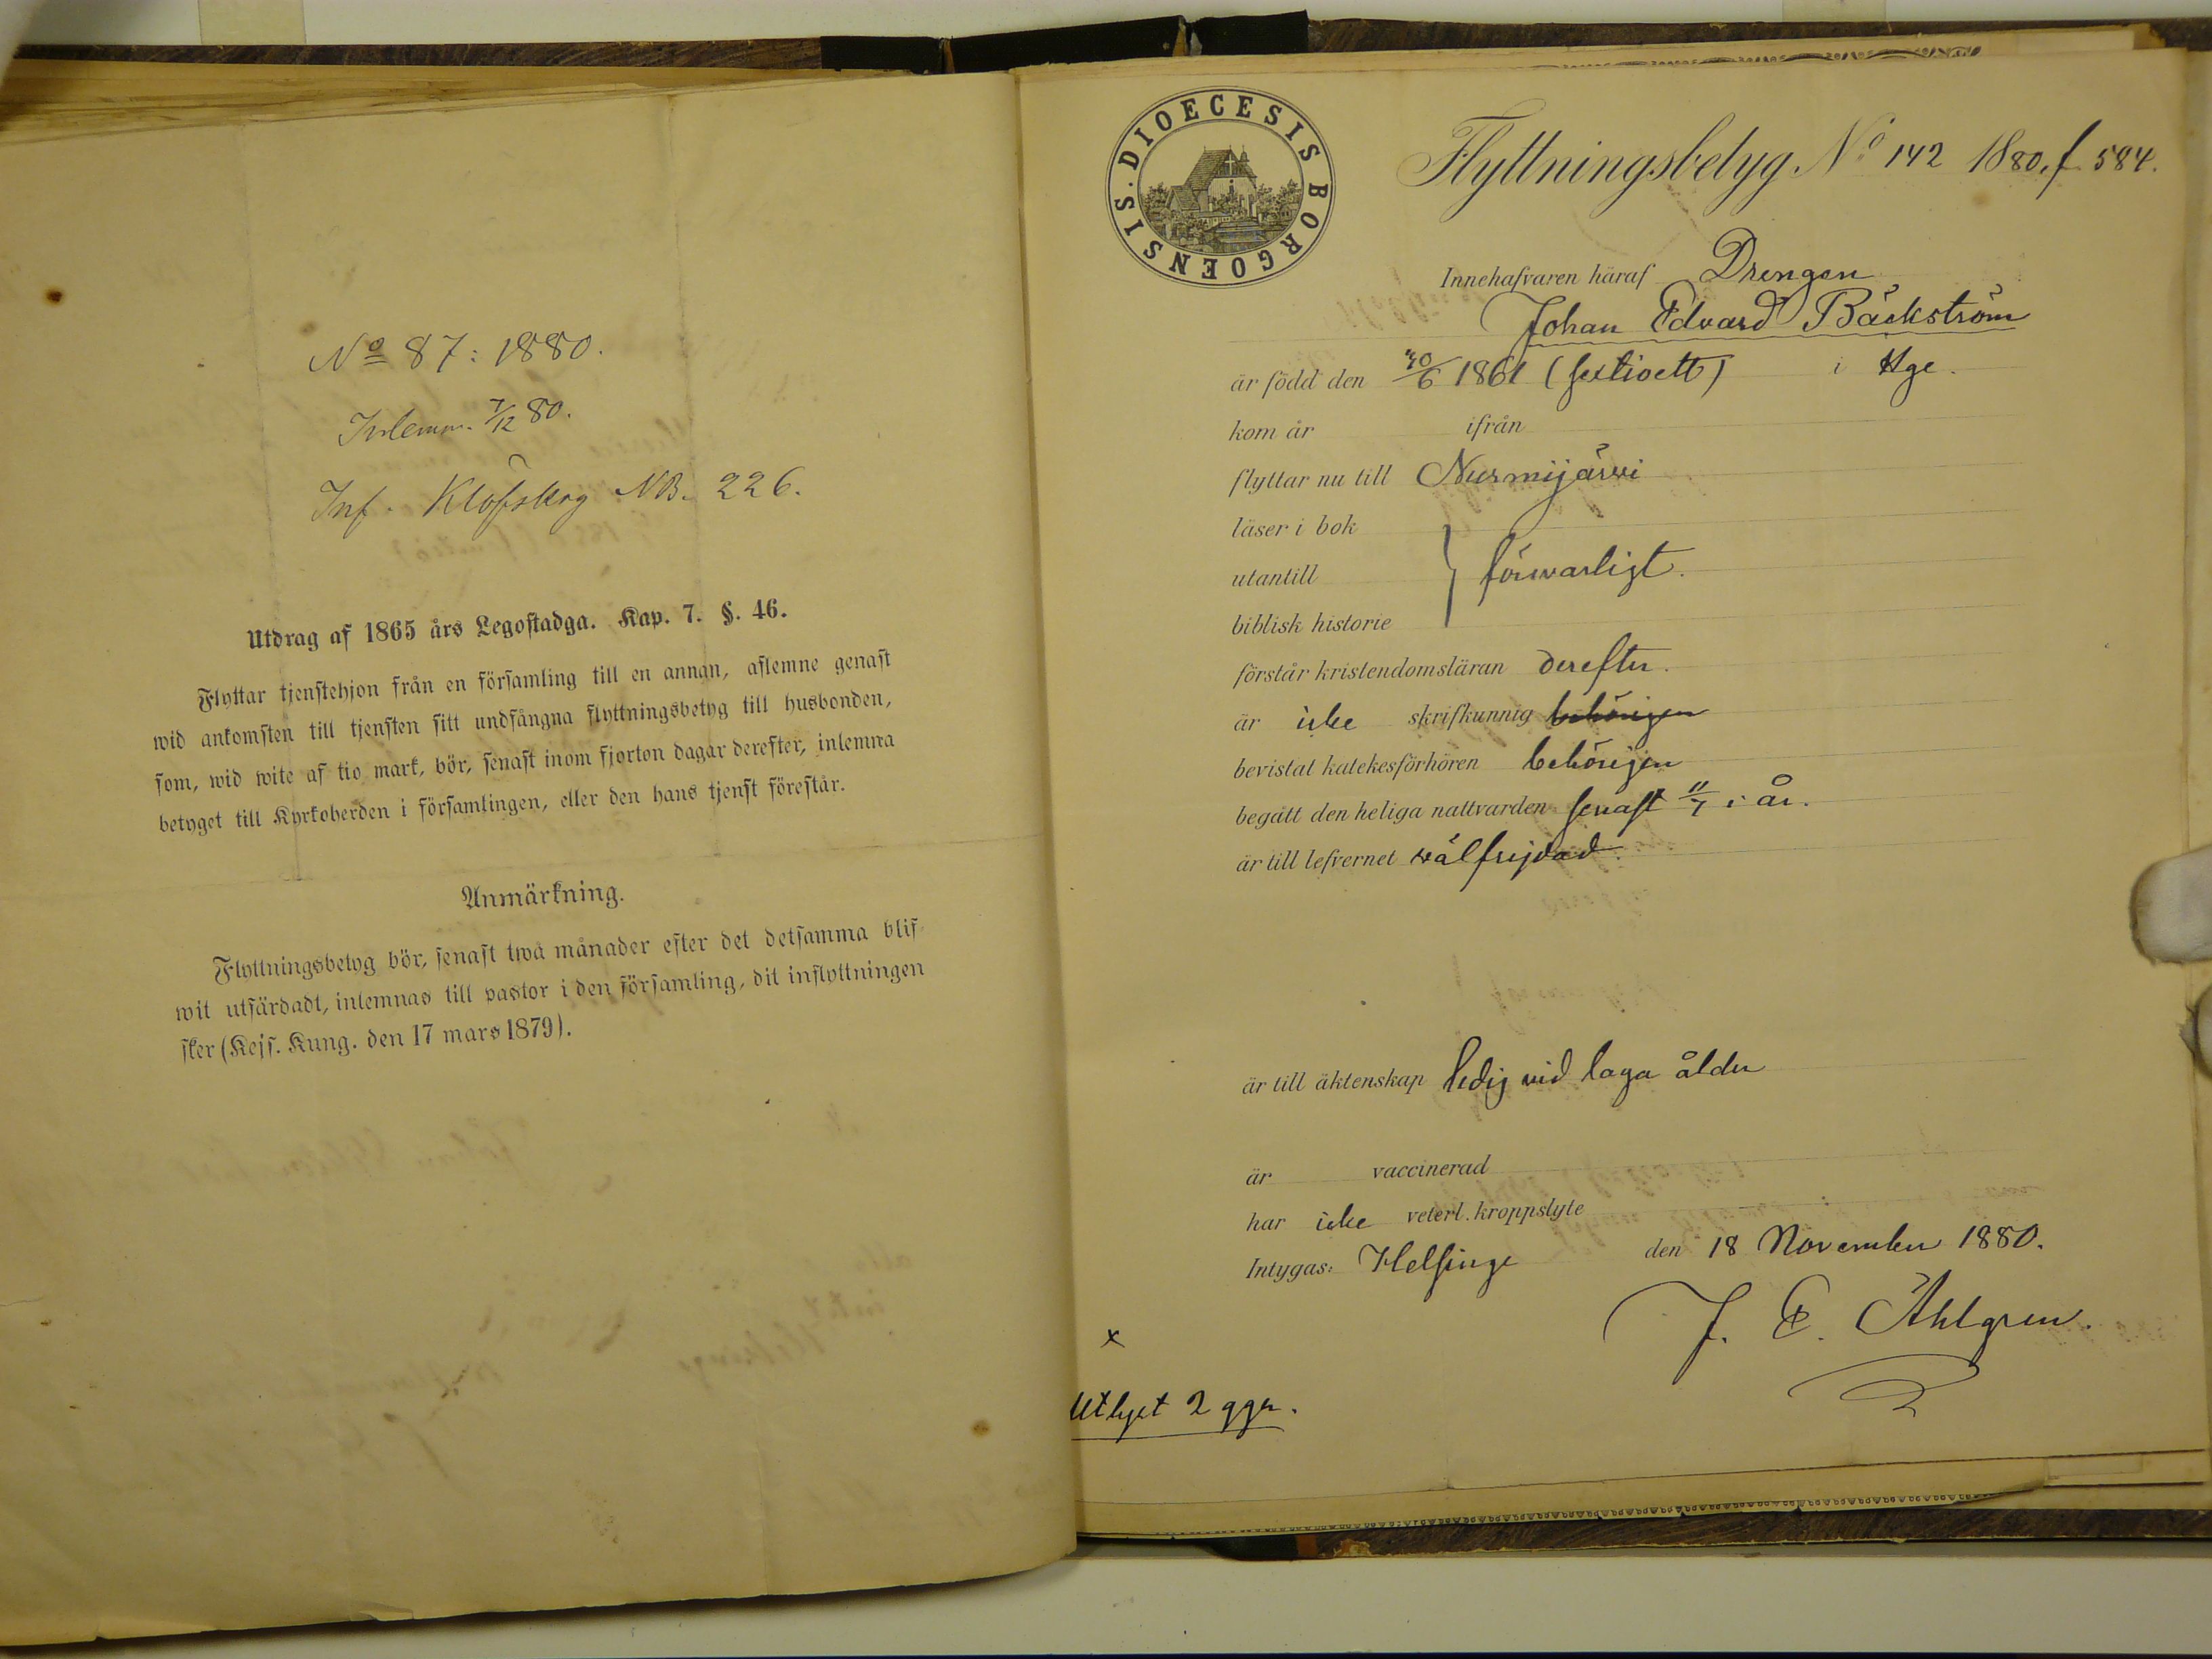 No 87: 1880.
Inlemn. 7/12 80.
Inf. Klöfskog NB. 226.
Utdrag af 1865 års Legostadga. Kap. 7. §. 46.
Flyttar tjenstehjon från en församling till en annan, aflemne genast
wid ankomsten till tjensten sitt undfångna flyttningsbetyg till husbonden,
som, wid wite af tio mark, bör, senast inom fjorton dagar derefter, inlemna
betyget till Kyrkoherden i församlingen, eller den hans tjenst förestår.
Anmärkning.
Flyttningsbetyg bör, senast twå månader efter det detsamma blif-
wit utfärdadt, inlemnas till pastor i den församling, dit inflyttningen
sker (Kejs. Kung. den 17 mars 1879).
SIS. DIOECESIS BORGOENSIS
Flyttningsbetyg No 142 1880, f 584.
Innehafvaren häraf Drengen
Johan Edvard Bäckström
är född den 30/6 1861 (sextioett) i Hge.
kom år ifrån
flyttar nu till Nurmijärvi
läser i bok
utantill } försvarligt.
biblisk historie
förstår kristendomsläran derefter.
är icke skrifkunnig behörigen
bevistat katekesförhören behörigen
begått den heliga nattvarden senast 11/7 i år.
är till lefvernet välfrejdad.
är till äktenskap ledig vid laga ålder
är vaccinerad
har icke veterl. kroppslyte
Intygas: Helsinge den 18 November 1880.
J. E. Åhlgren.
x
Utlyst 2 ggr.